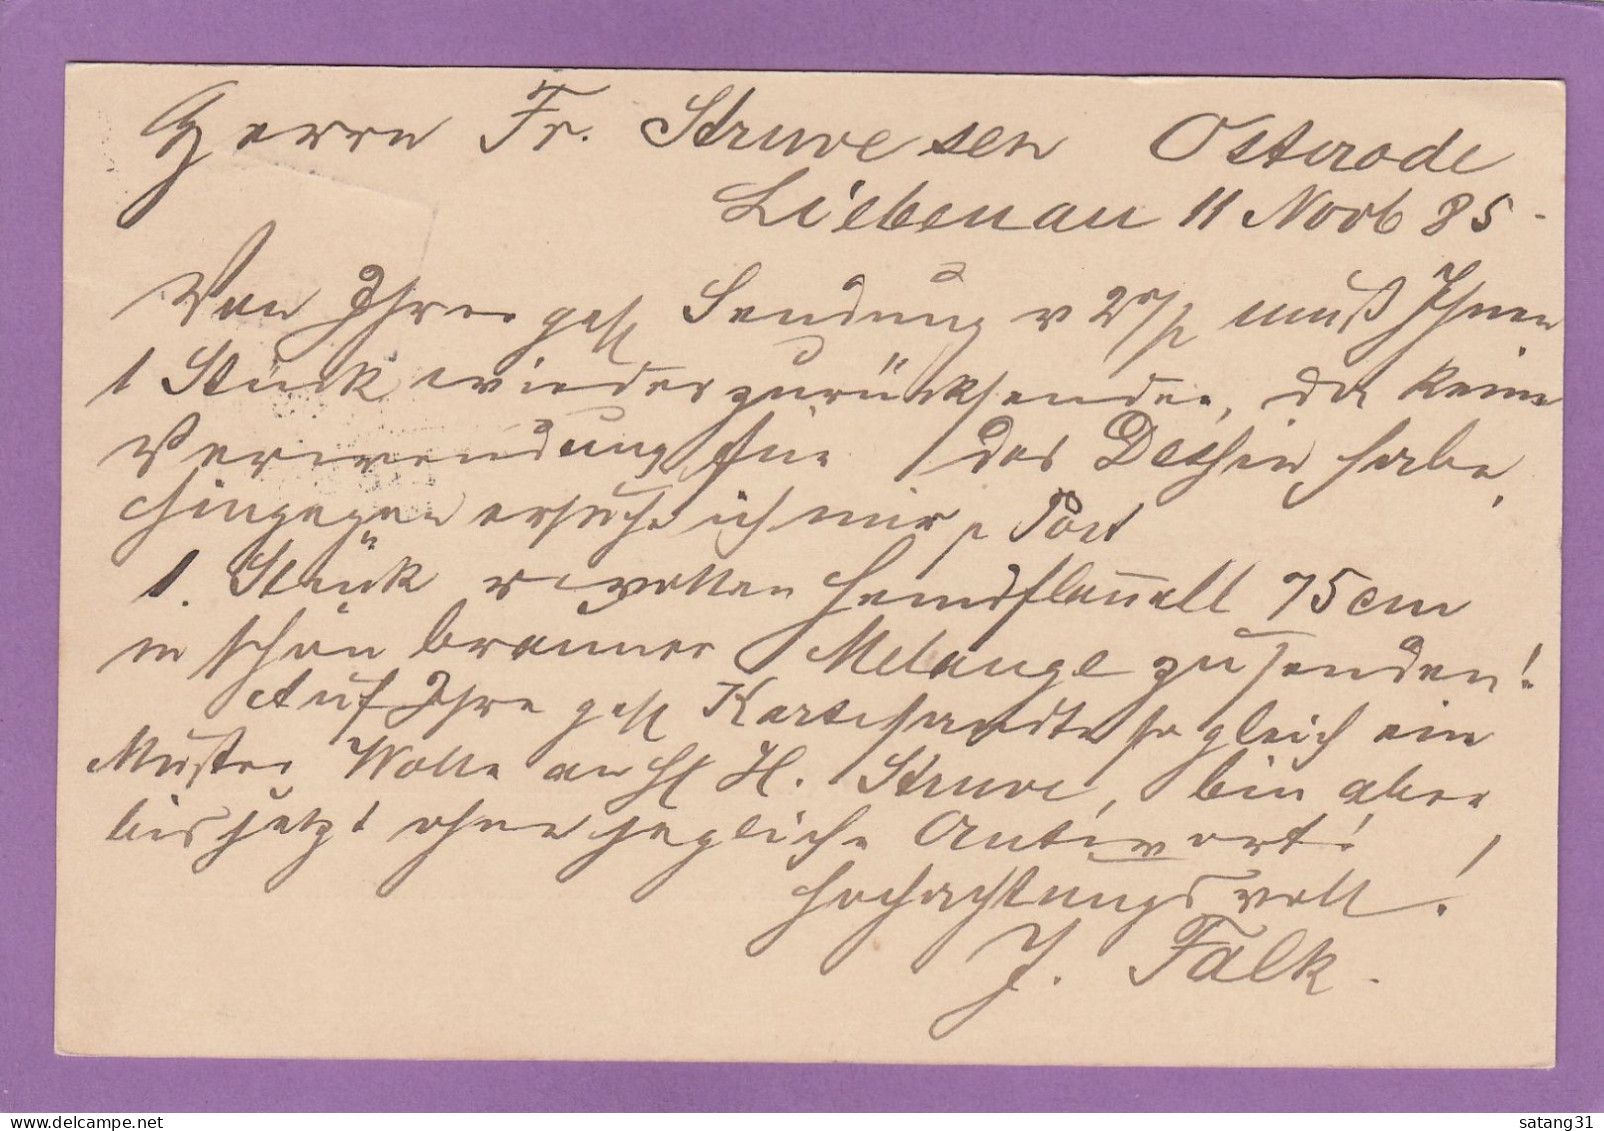 Herrn Fr. Struve sen Osterode
Liebenau 11 Novb 85
Von Ihrer gefl Sendung v muß Ihnen
1 Stück wieder zurücksenden, da keine
Verwendung für das Dessin habe,
hingegen ersuche ich mir p Post
1. Stück Hemdflanell 75 cm
in schön brauner Melange zu senden!
Auf Ihre gefl Karte sandte sogleich ein
Muster Wolle an H. Struve, bin aber
bis jetzt ohne jegliche Antwort!
Hochachtungsvoll!
J. Falk.
satang31